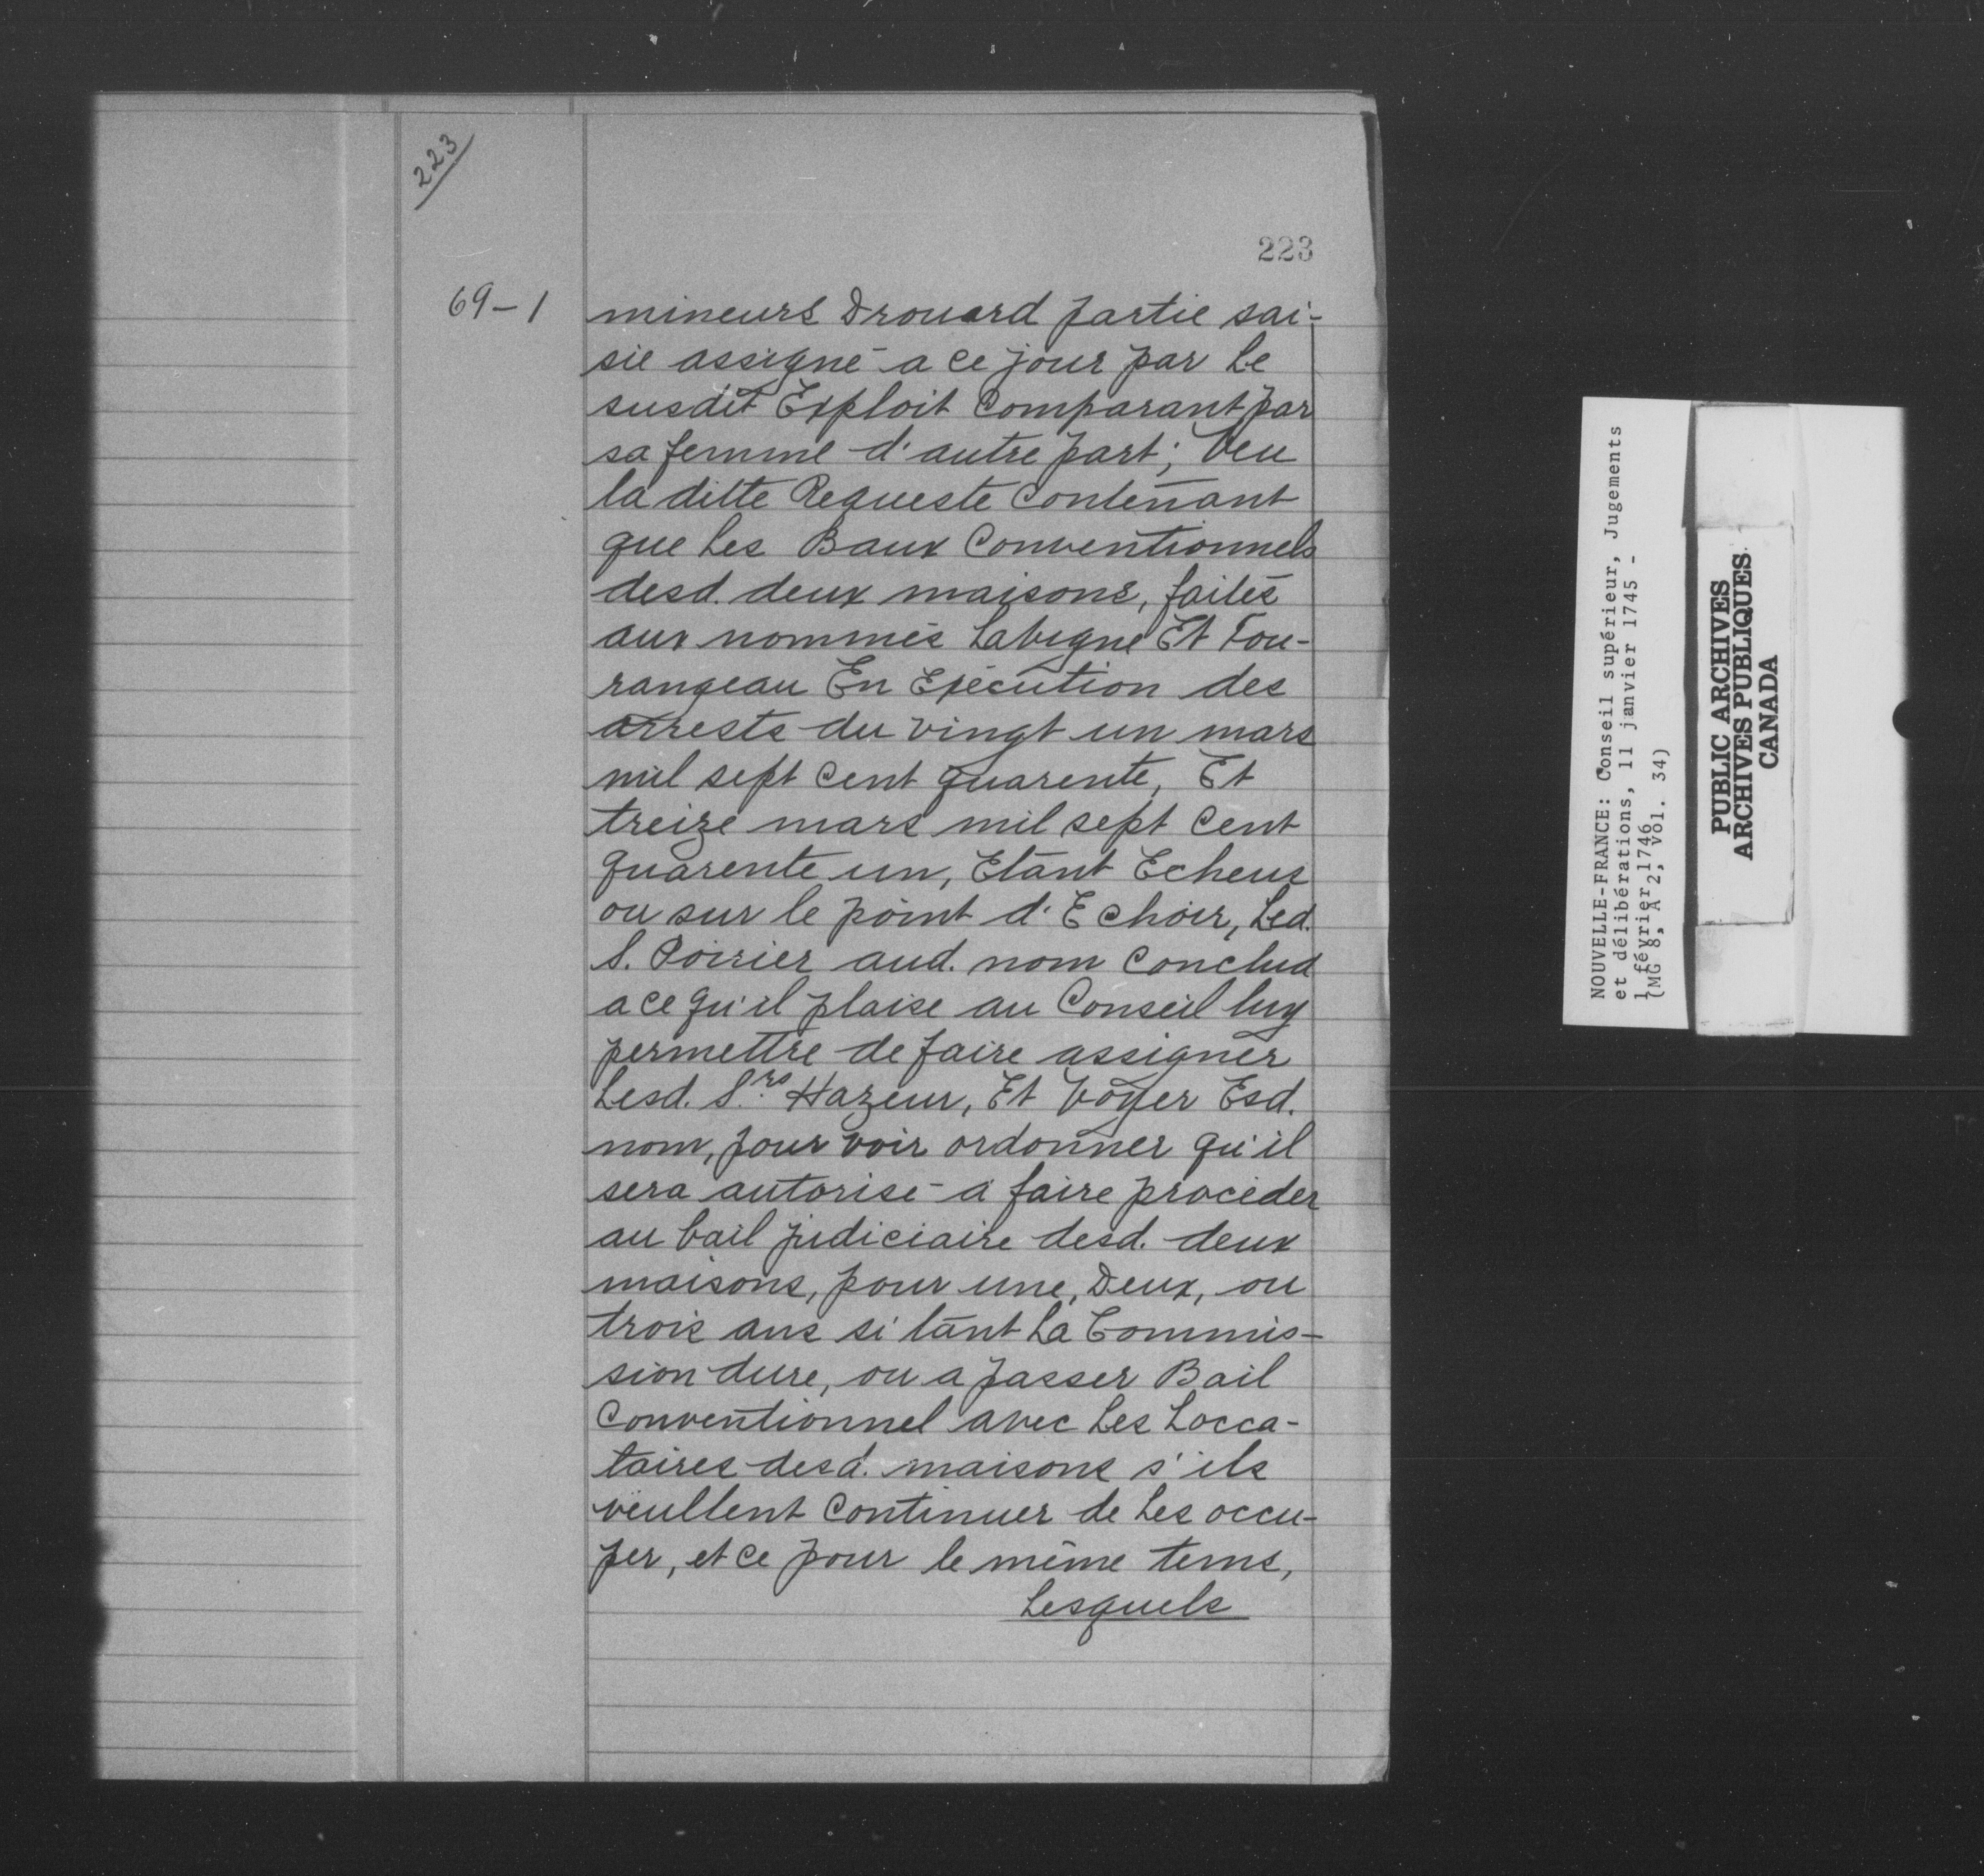 223
223
69-1
mineurs Drouard partie sai-
sie assigné a ce jour par Le
susdit Exploit Comparant par
sa femme d'autre part; Veu
la ditte Requeste Contenant
que Les Baux Conventionnels
desd. deux maisons, faites
aux nommés Lavigne Et Tou-
rangeau En Exécution des
arrests du vingt un mars
mil sept Cent quarente, Et
treize mars mil sept Cent
quarente un, Etant Echeus
ou sur le point d'Echoir, Led.
S. Poirier aud. nom Conclud
a ce qu'il plaise au Conseil luy
permettre de faire assigner
Lesd. S.rs Hazeur, Et Voyer Esd.
nom, pour voir ordonner qu'il
sera autorisé a faire procéder
au bail judiciaire desd. deux
maisons, pour une, Deux, ou
trois ans si tant La Commis-
sion dure, ou a passer Bail
Conventionnel avec Les Locca-
taires desd. maisons s'ils
veullent Continuer de Les occu-
per, et ce pour le même tems,
Lesquels
NOUVELLE-FRANCE: Conseil supérieur, Jugements
et délibérations, 11 janvier 1745 -
1 février 1746
(MG 8, A 2, vol. 34)
PUBLIC ARCHIVES
ARCHIVES PUBLIQUES
CANADA